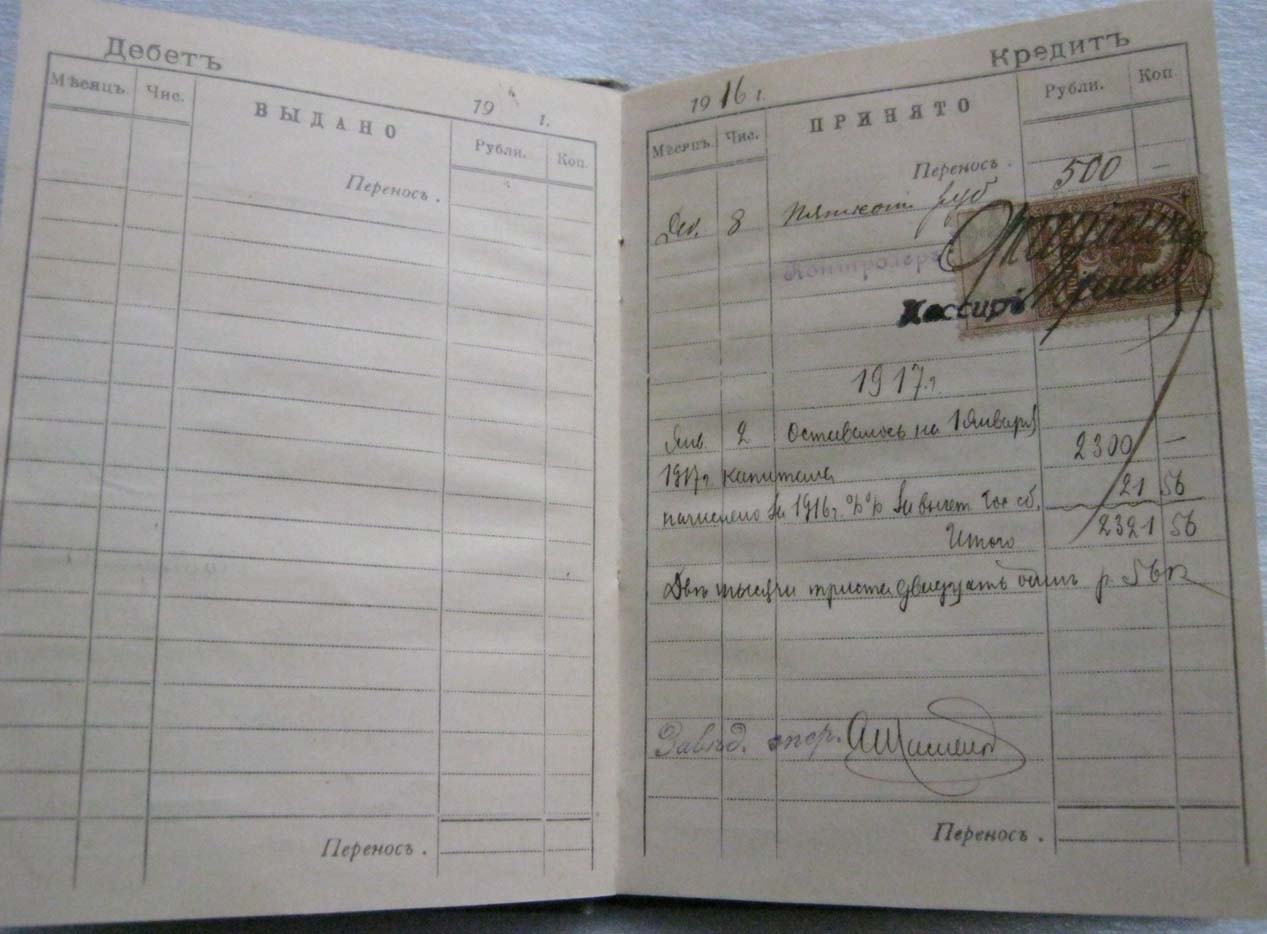 Дебетъ
19 г.
Мѣсяцъ. Чис. ВЫДАНО Рубли. Коп.
Переносъ.
Переносъ.
Кредитъ
1916 г.
Мѣсяцъ. Чис. ПРИНЯТО Рубли. Коп
Переносъ.
Дек. 8 Пятьсот руб 500 —
Контролеръ
Кассиръ
1917 г.
Янв. 2 Оставалось на 1 Января
1917 г. капитала 2300 —
начислено за 1916 г. %% за вычет. сб. 21 56
Итого 2321 56
Двѣ тысячи триста двадцать одинъ р. 56 к
Завѣд. опер.
Переносъ.